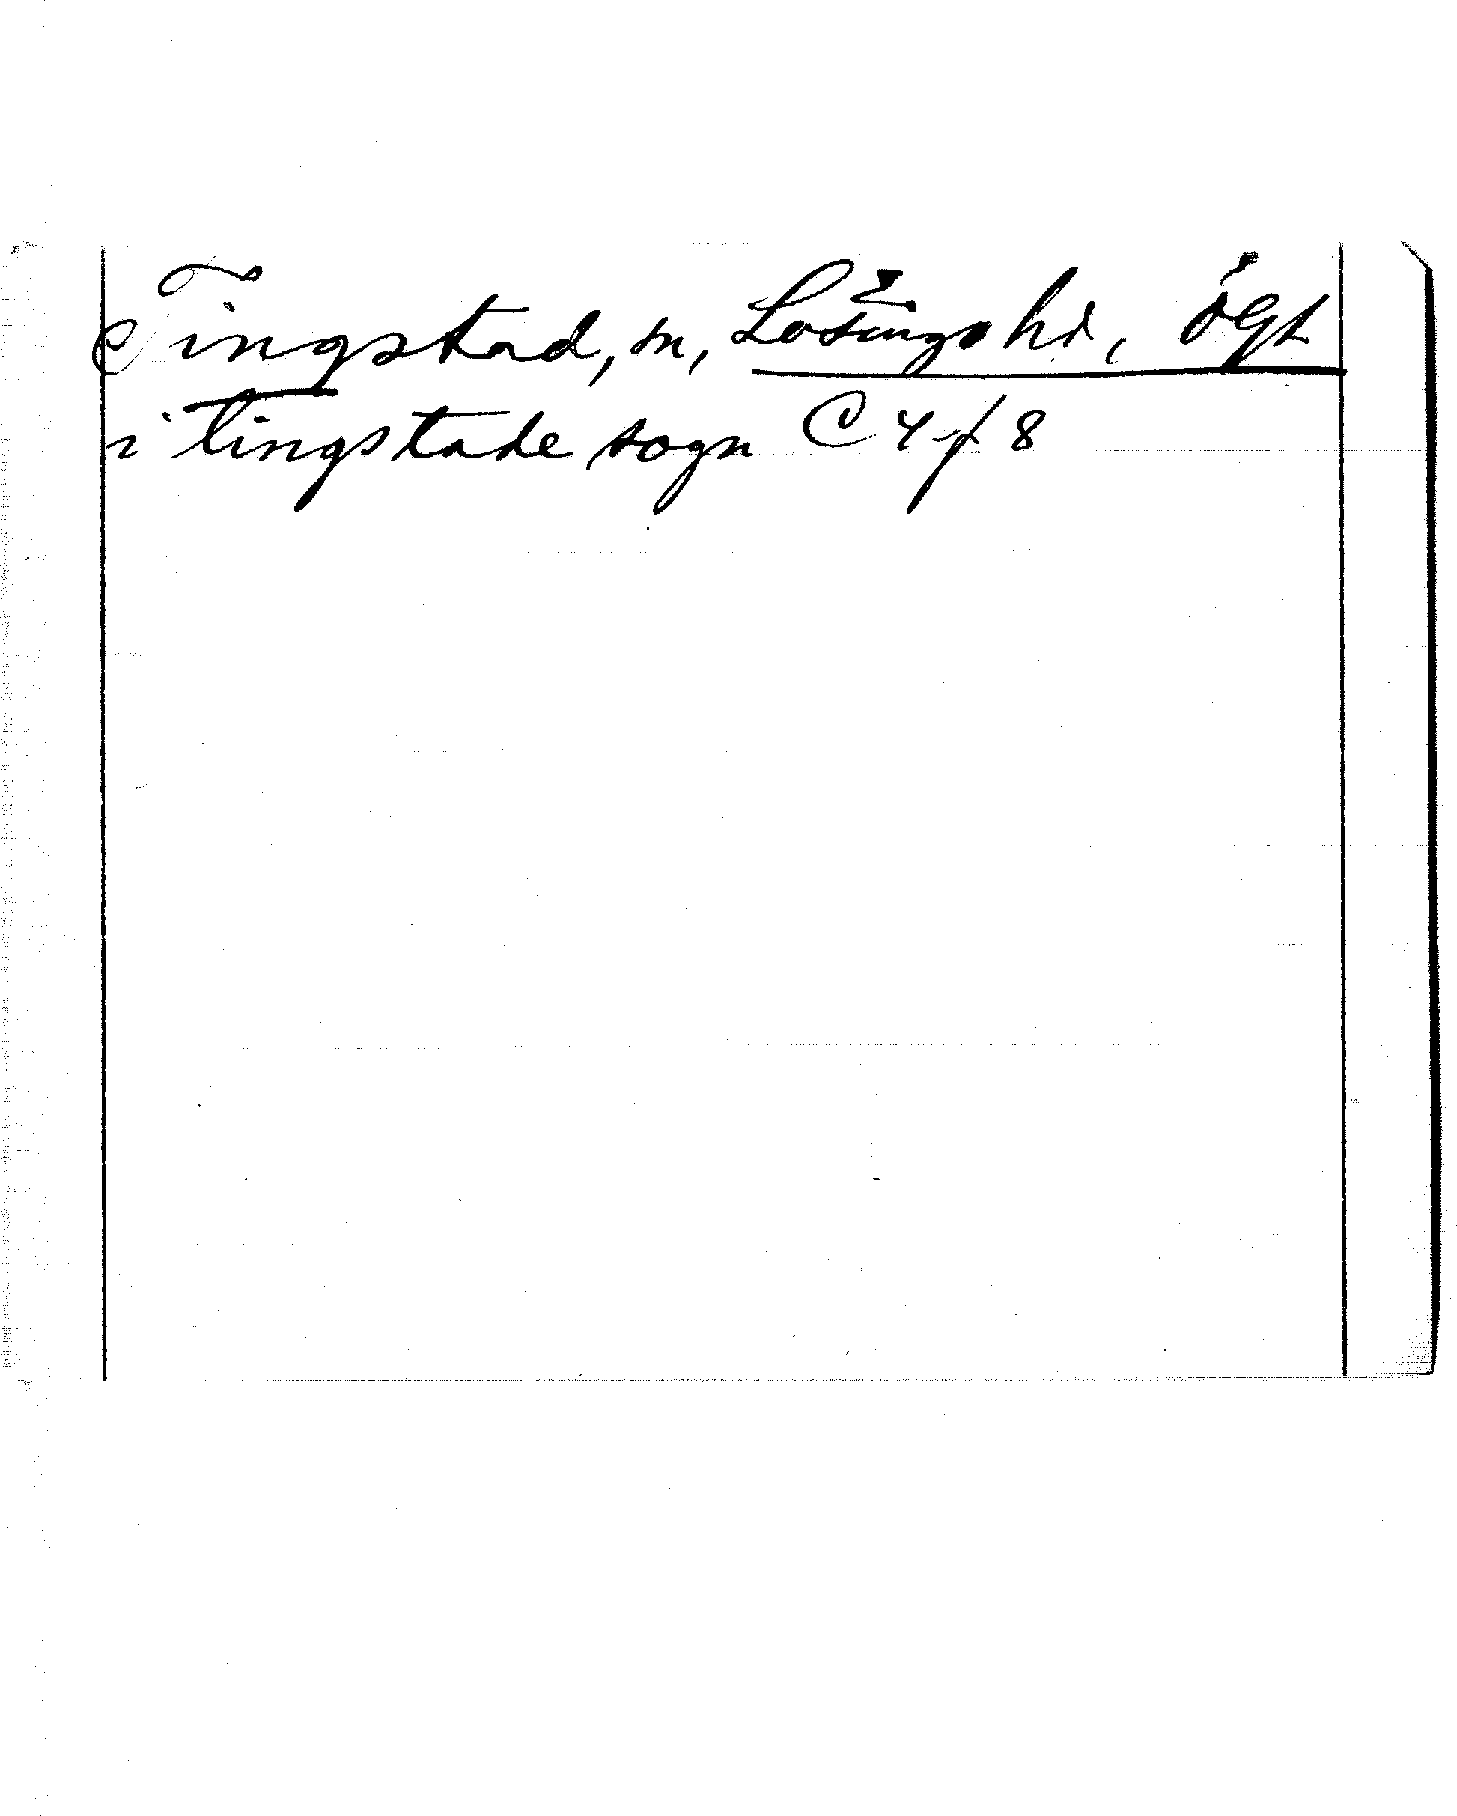 Tingstad, sn, Lösings hd, Ögl
i tingstade sogn C 4 f 8